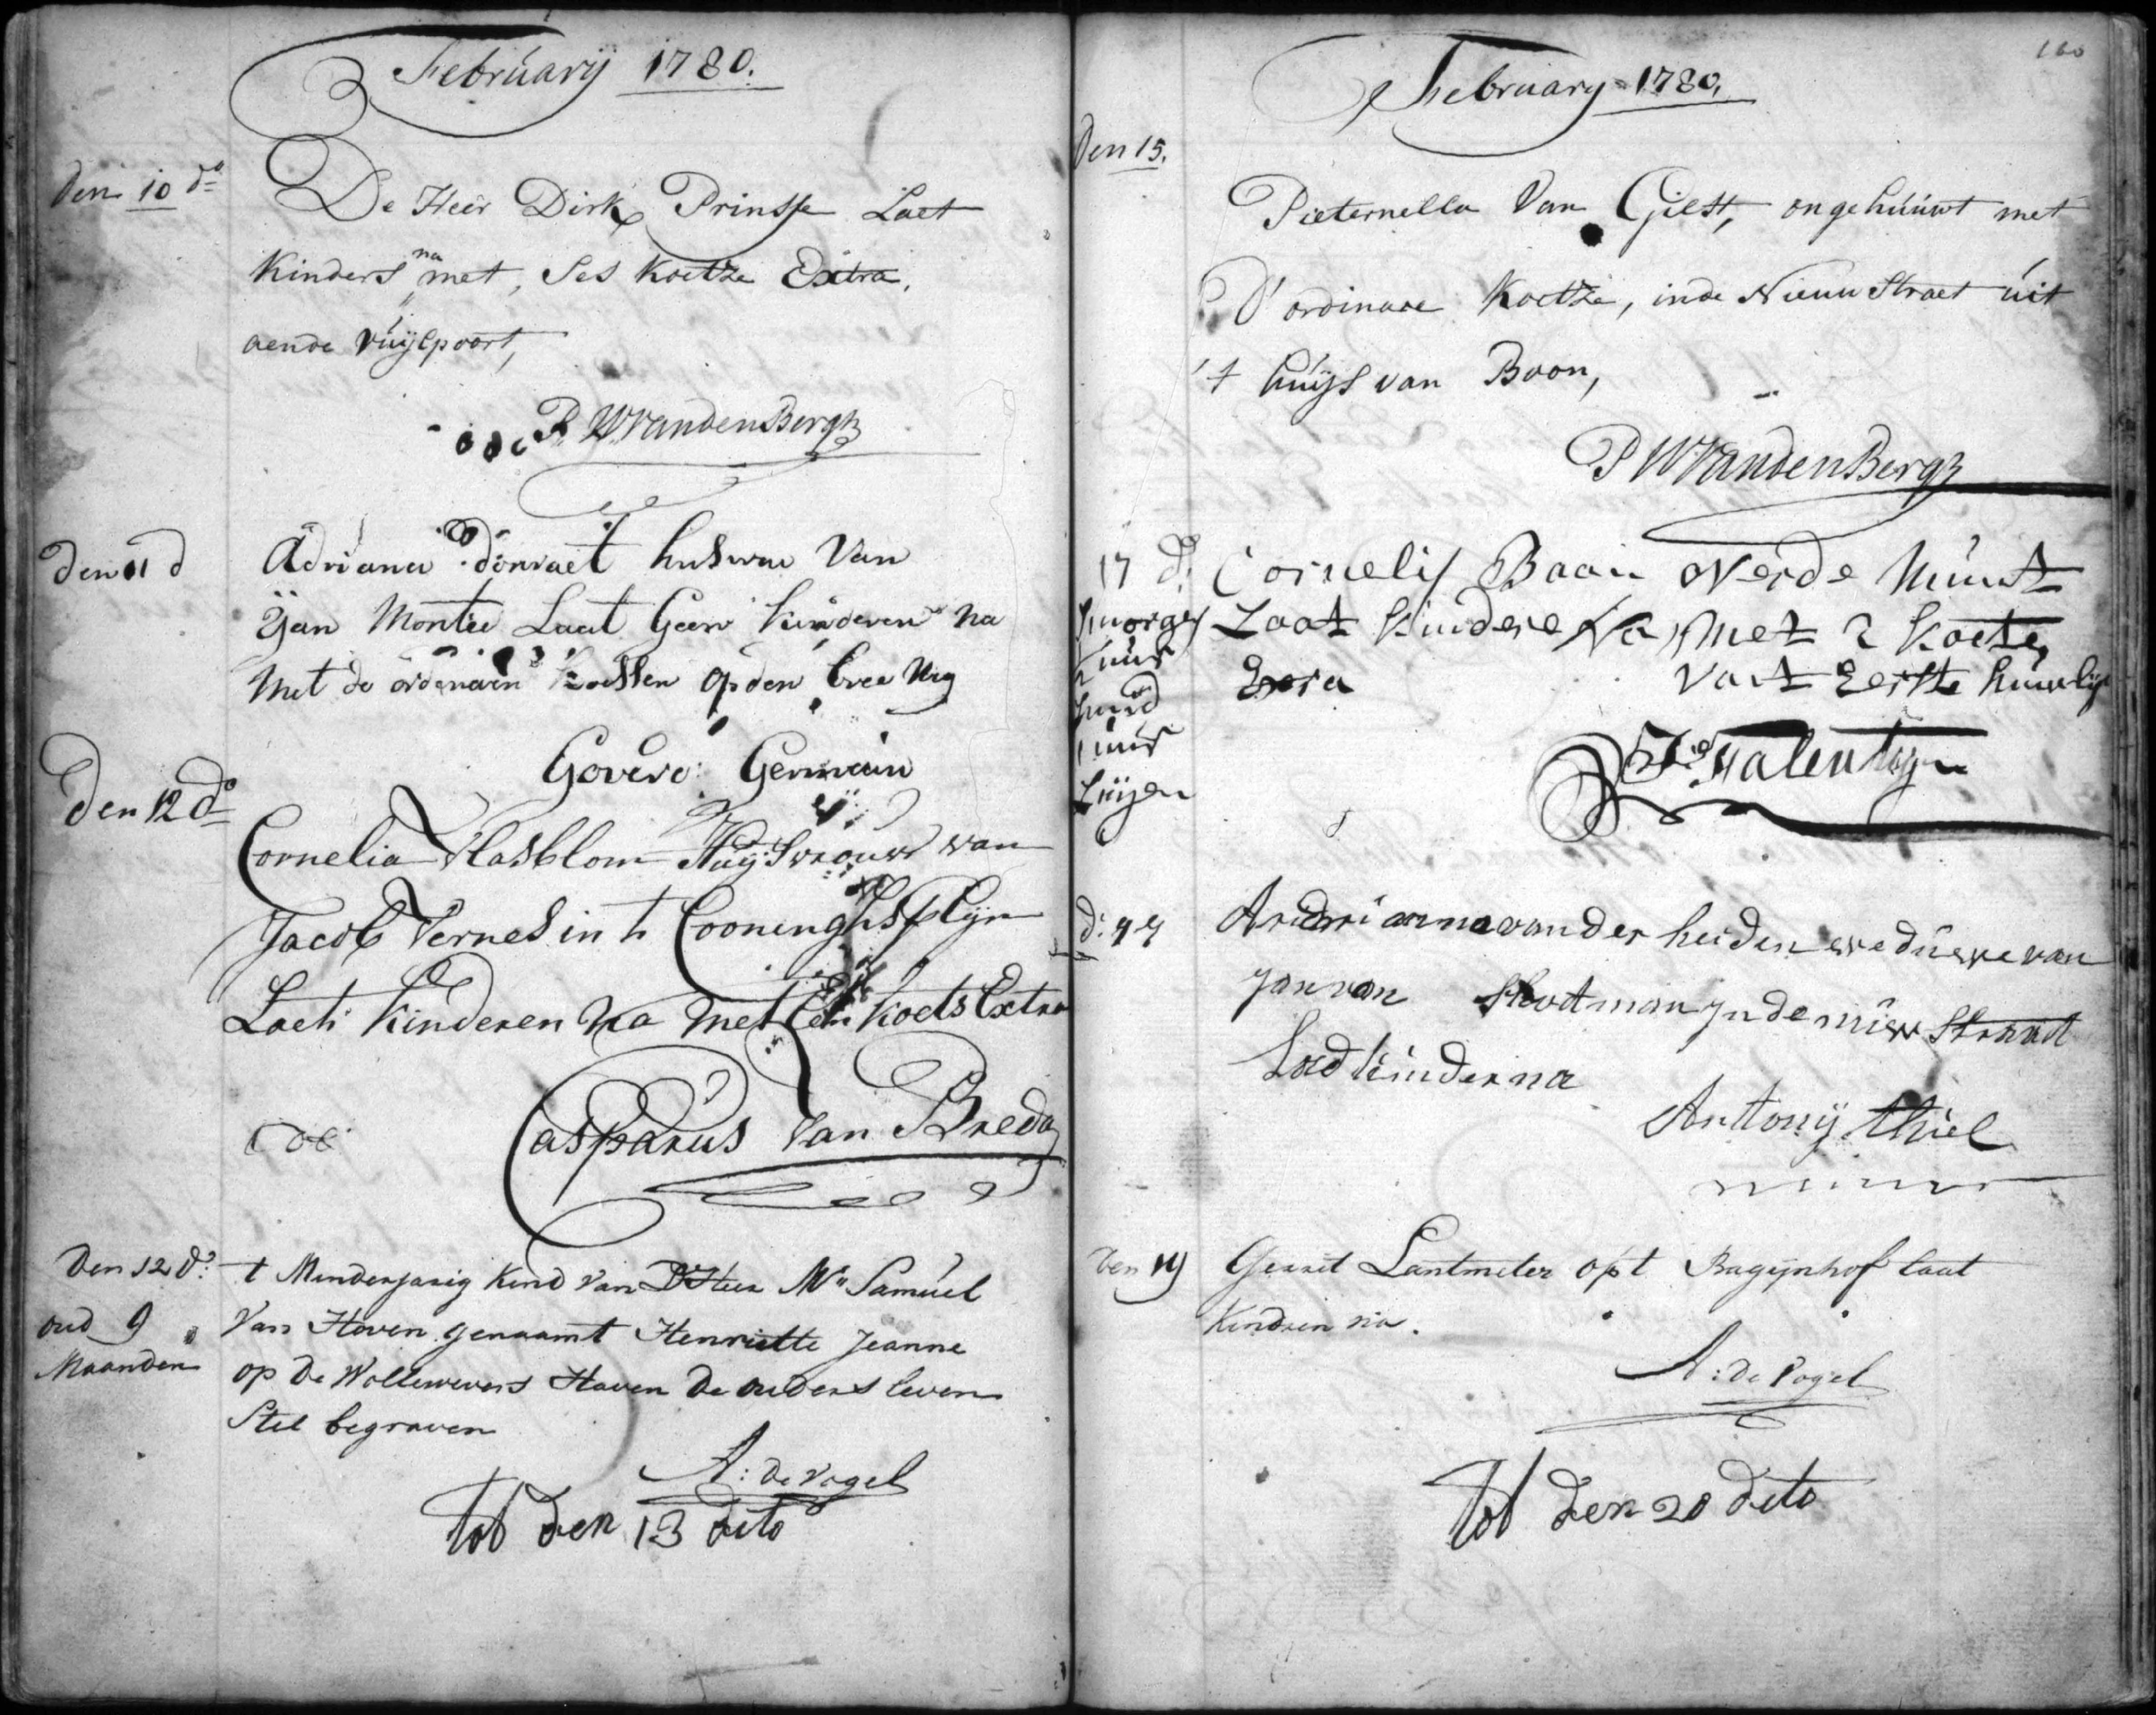 Februarij 1780.
den 10 do
De Heer Dirk Prinsse Laet
Kinders na met, Ses Koetze Extra,
aende Vuijlpoort,
P. W Vanden Bergh
den 11 d
Adriana donvaet husvrw Van
Yan Montee Laat Geen kinderen na
Met de ordenaren koetsen op den bree
Govert Germain
den 12 do
Cornelia Vlasblom Huijsvrouw van
Jacob Vernes in t Cooninghsplijn
Laeti Kinderen Na met Een koets Extra
Casparus Van Breda
Den 12 do:
oud 9
Maanden
t Minderjarig Kind van D'Heer Mr Samuel
Van Hoven genaamt Henriette Jeanne
op de Wollewevers Haven de ouders leven
Stil begraven
A: de Vogel
tot den 13 dito
160
February 1780.
Den 15.
Pieternella Van Gilst, ongehuuwt met
D' ordinare Koetze, inde Nieuw Straet uit
't huijs van Boon,
P W Vanden Bergh
17 d:
Smorges
uur
uur
Luijen
Cornelis Baan overde Munt
Laat kindere Na Met 2 koetse
Exsra
Vant Eerste huwlijk
Valentijn
d: 19
Andrianna van der heiden weduwe van
Jan van Slootman Jn de niuw Straat
Laed kinder na
Antonij thiel
Den 19
Gerrit Lantmeter op t Bagijnhof laat
Kindren na.
A: de Vogel
tot den 20 dito